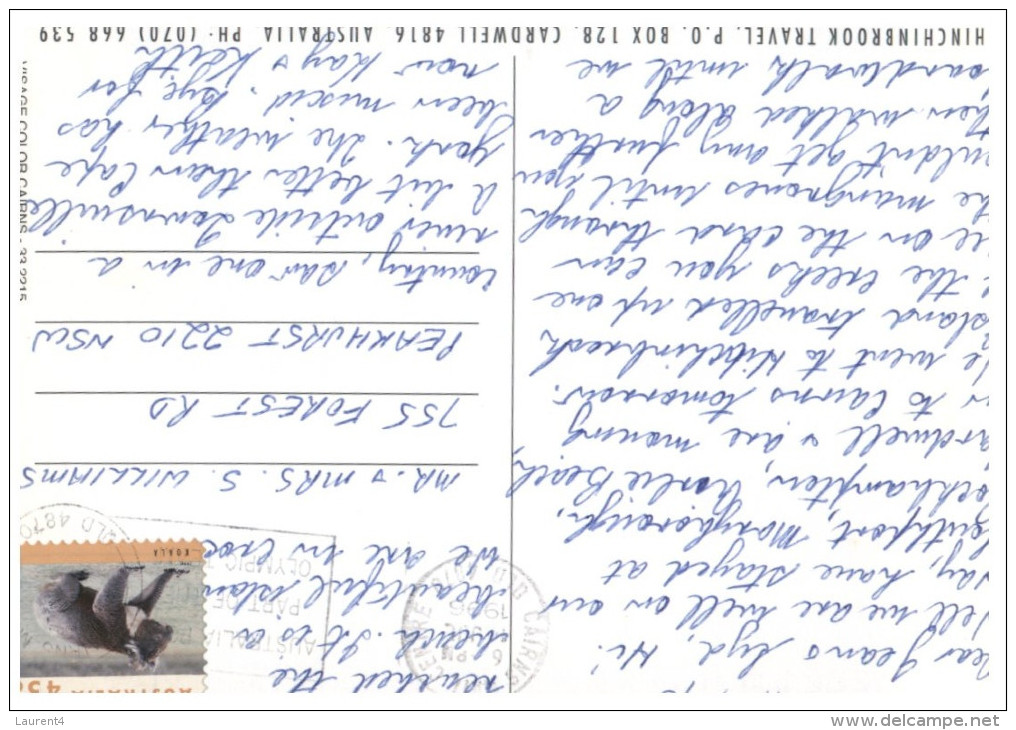 Dear Jean & Syd, Hi!
Well we are well on our
way, have stayed at
Southport, Maryborough,
Rockhampton, Airlie Beach,
Cardwell & are moving
on to Cairns tomorrow.
We went to Hitchinbrook
Island travelled up one
of the creeks you can
see on the card through
the mangroves until you
couldn't get any further
then walked along a
boardwalk until we
reached the
beach. It is a
beautiful island
We are in croc
country, saw one in a
river outside Townsville
a bit better than Cape
York. The weather has
been mixed. Bye for
now Kay & Keith
MR. & MRS. S. WILLIAMS
755 FOREST RD
PEAKHURST 2210 NSW
AUSTRALIA 45c
KOALA
AUSTRALIA
PART OF
OLYMPIC
CAIRNS
QLD 4870
6
PM
1996
HINCHINBROOK TRAVEL. P.O. BOX 128. CARDWELL 4816. AUSTRALIA PH: (070) 668 539
VISAGE COLOR CAIRNS - 33 2215
Laurent4
www.delcampe.net